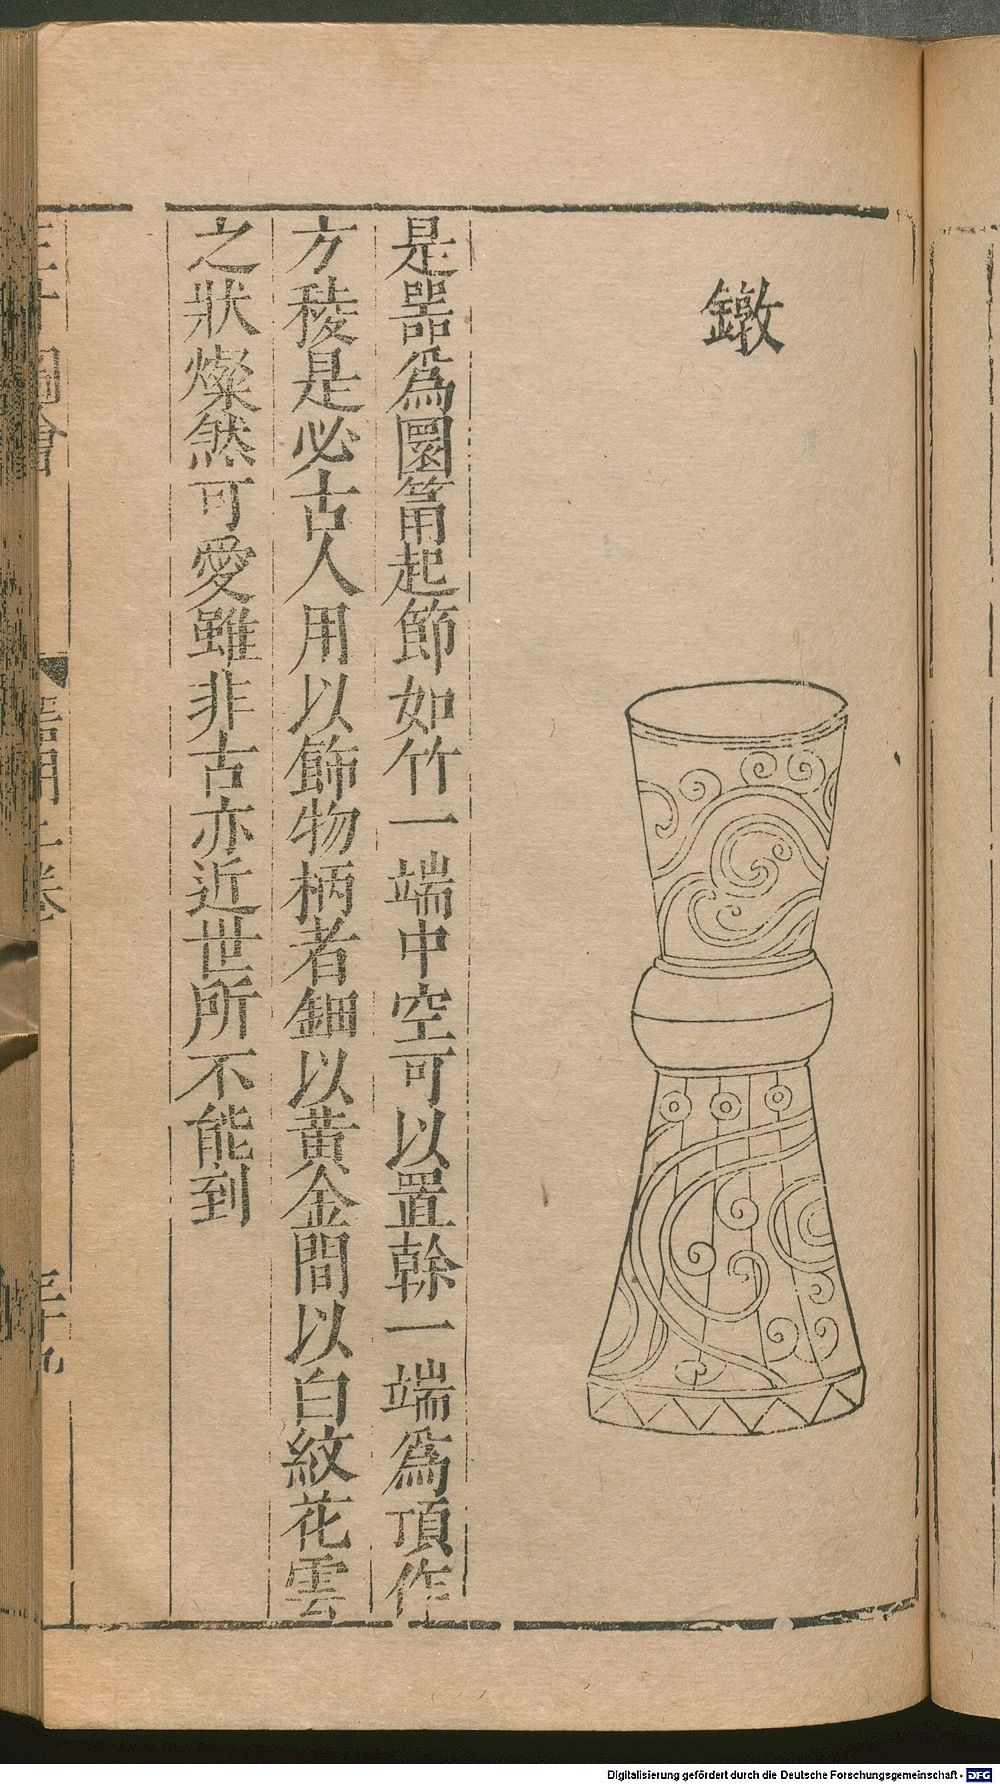 鐓
是器爲圜筩起節如竹一端中空可以置幹一端爲頂作
方稜是必古人用以飾物柄者鈿以黄金間以白紋花雲
之狀燦然可愛雖非古亦近世所不能到
Digitalisierung gefördert durch die Deutsche Forschungsgemeinschaft - DFG